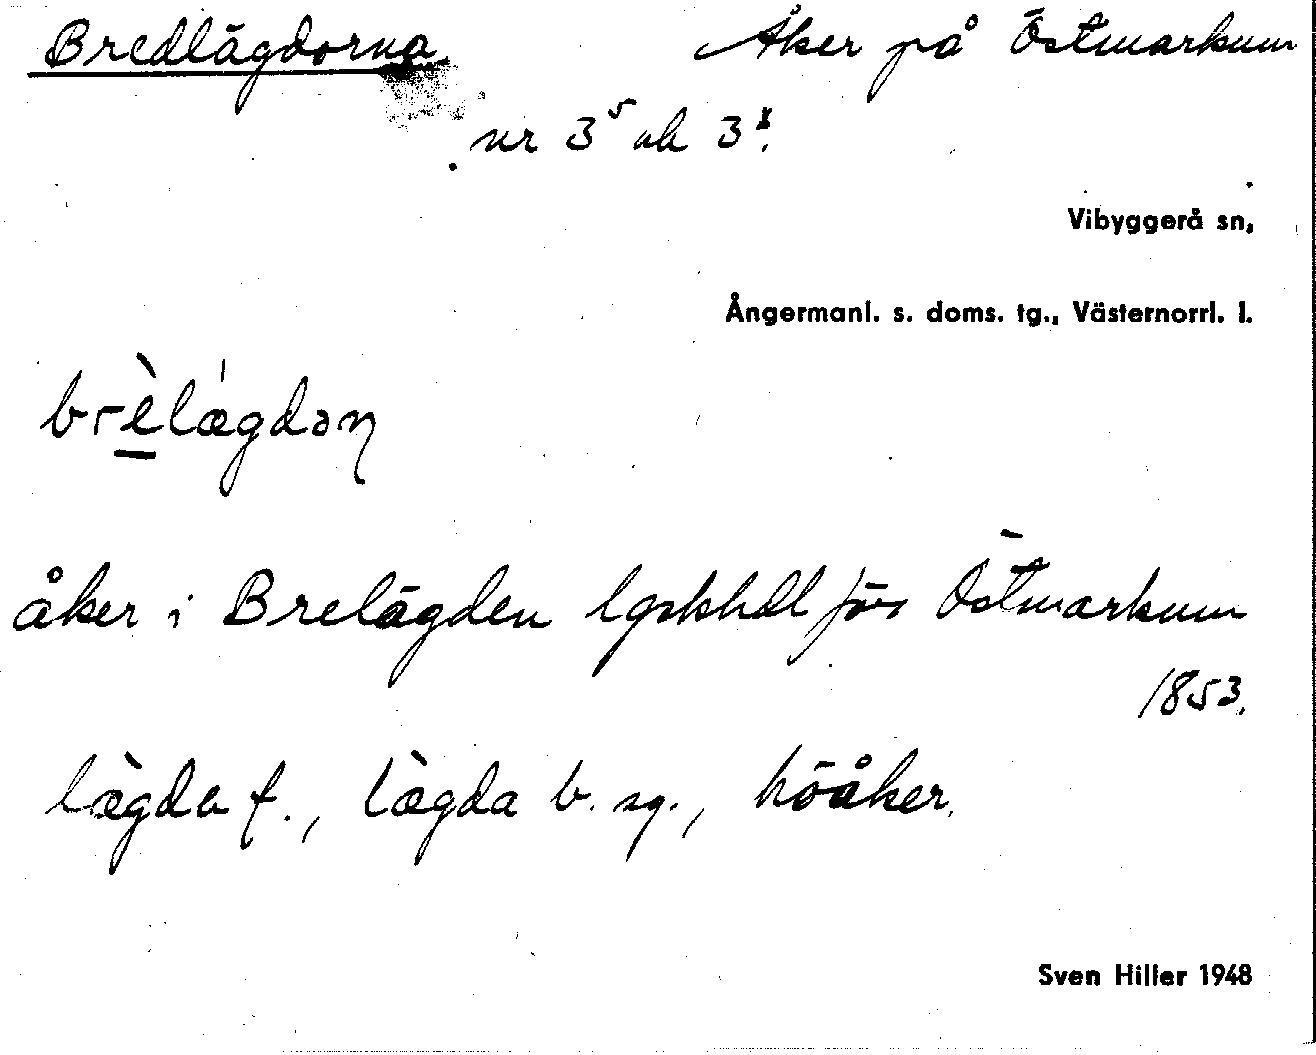 Bredlägdorna Åker på Östmarkum
nr 3⁵ och
Vibyggerå sn,
Ångermanl. s. doms. tg., Västernorrl. l.
brèlægdəɳ
åker i Brelägden lgskhdl för Östmarkum
1853.
lægda f., lægda b. sg., höåker.
Sven Hiller 1948